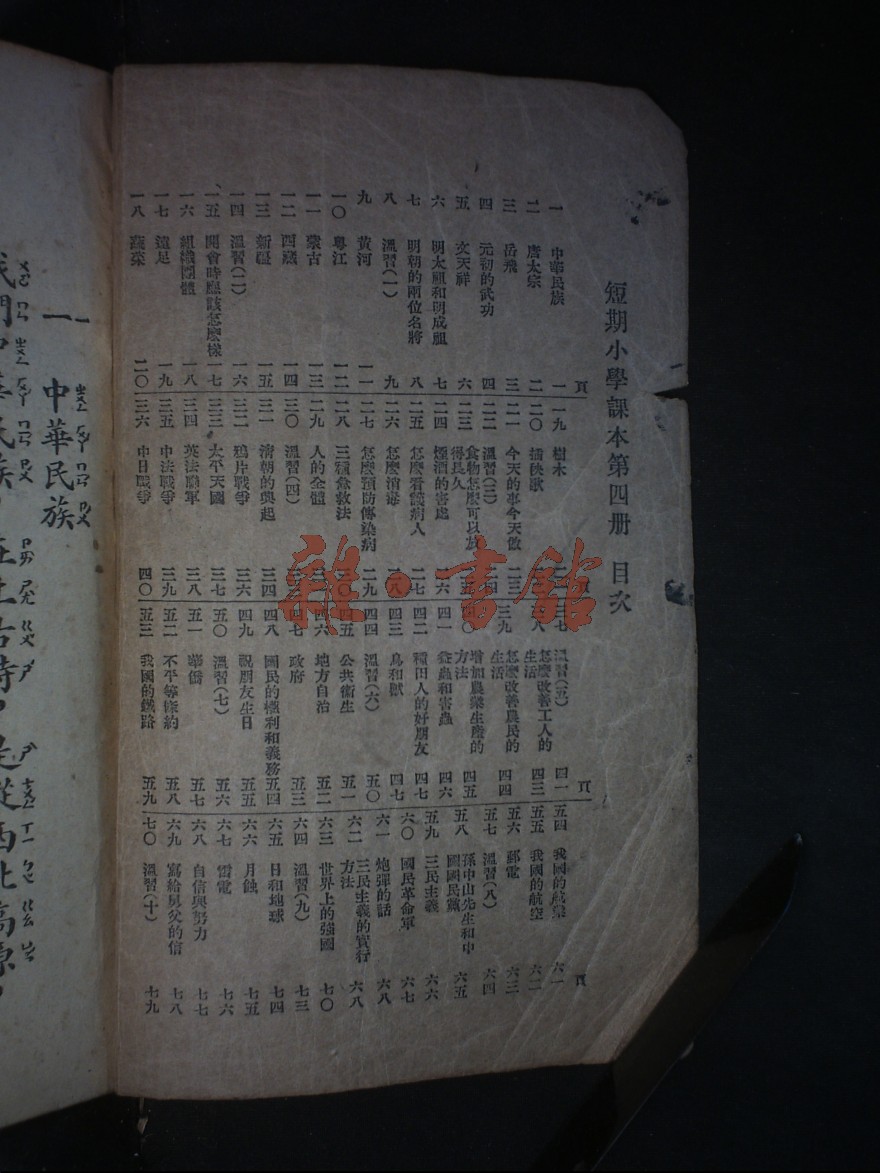 短期小學課本第四册 目次
頁
一 中華民族 一
二 唐太宗 二
三 岳飛 三
四 元初的武功 四
五 文天祥 六
六 明太祖和明成祖 七
七 明朝的兩位名將 八
八 溫習(一) 九
九 黃河 一一
一〇 粵江 一二
一一 蒙古 一三
一二 西藏 一四
一三 新疆 一五
一四 溫習(二) 一六
一五 開會時應該怎麼樣 一七
一六 組織團體 一八
一七 遠足 一九
一八 蔬菜 二〇
一九 樹木
二〇 插秧歌
二一 今天的事今天做
二二 溫習(三)
二三 食物怎麼可以放得長久
二四 煙酒的害處
二五 怎麼看護病人 二七
二六 怎麼消毒 二八
二七 怎麼預防傳染病 二九
二八 三種急救法
二九 人的全體
三〇 溫習(四)
三一 清朝的興起 三四
三二 鴉片戰爭 三六
三三 太平天國 三七
三四 英法聯軍 三八
三五 中法戰爭 三九
三六 中日戰爭 四〇
溫習(五) 四一
怎麼改善工人的生活 四三
三九 怎麼改善農民的生活 四四
四〇 增加農業生產的方法 四五
四一 益蟲和害蟲 四六
四二 種田人的好朋友 四七
四三 鳥和獸 四七
四四 溫習(六) 五〇
四五 公共衞生 五一
四六 地方自治 五二
四七 政府 五三
四八 國民的權利和義務 五四
四九 祝朋友生日 五五
五〇 溫習(七) 五六
五一 華僑 五七
五二 不平等條約 五八
五三 我國的鐵路 五九
頁
五四 我國的航業 六一
五五 我國的航空 六二
五六 郵電 六三
五七 溫習(八) 六四
五八 孫中山先生和中國國民黨 六五
五九 三民主義 六六
六〇 國民革命軍 六七
六一 炮彈的話 六八
六二 三民主義的實行方法 六八
六三 世界上的強國 七〇
六四 溫習(九) 七三
六五 日和地球 七四
六六 月蝕 七五
六七 雷電 七六
六八 自信與努力 七七
六九 寫給舅父的信 七八
七〇 溫習(十) 七九
雜·書館
一 中華民族
我們中華民族，在上古時，是從西北高原，